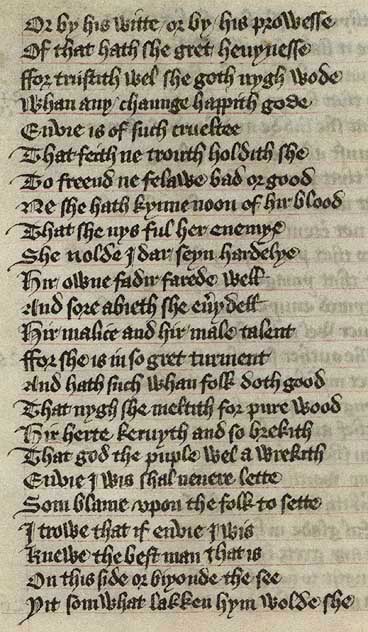 Or by his witte / or by his prowesse
Of that hath she gret heuynesse
ffor trustith wel she goth nygh wode
Whan any chaunge happith gode
Enuie is of such crueltee
That feith ne trouth holdith she
To freend ne felawe bad or good
Ne she hath kynne noon of hir blood
That she nys ful her enemye
She nolde I dar seyn hardelye
Hir owne fadir farede well
And sore abieth she eu̾y dell
Hir malice and hir male talent
ffor she is in so gret turment
And hath such whan folk doth good
That nygh she meltith for pure wood
Hir herte keruyth and so brekith
That god the puple wel a wrekith
Enuie I wis shal neuere lette
Som blame vpon the folk to sette
I trowe that if enuie I wis
Knewe the best man that is
On this side or biyonde the see
Yit somwhat lakken hym wolde she